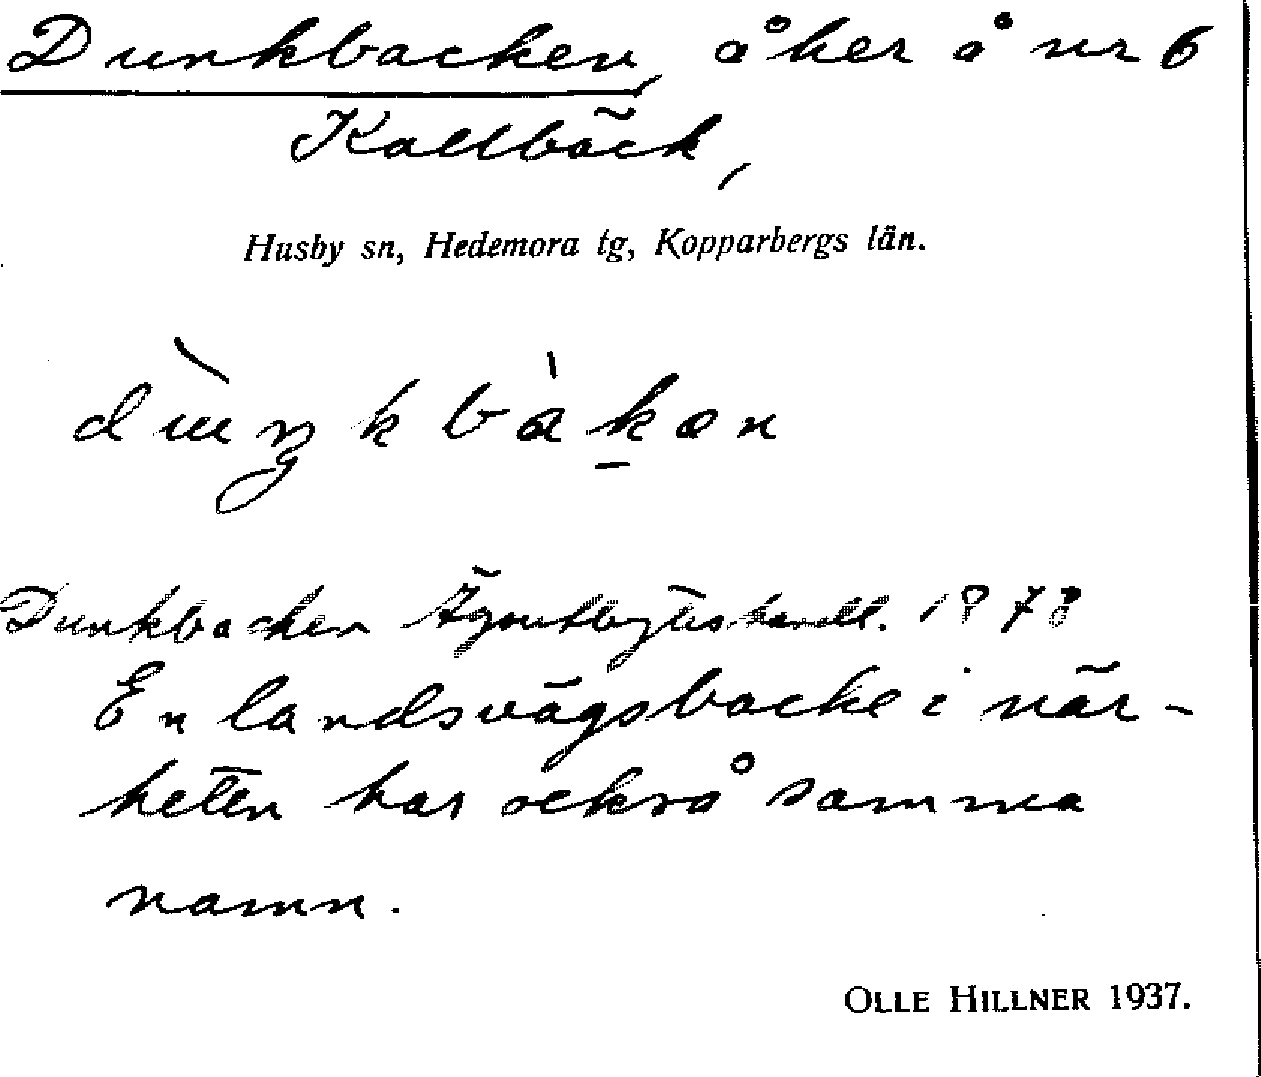 Dunkbacken, åker å nr 6
Kallbäck,
Husby sn, Hedemora tg, Kopparbergs län.
Dunkbacken Ägoutbyteshandl. 1878
En landsvägsbacke i när-
heten har också samma
namn.
OLLE HILLNER 1937.